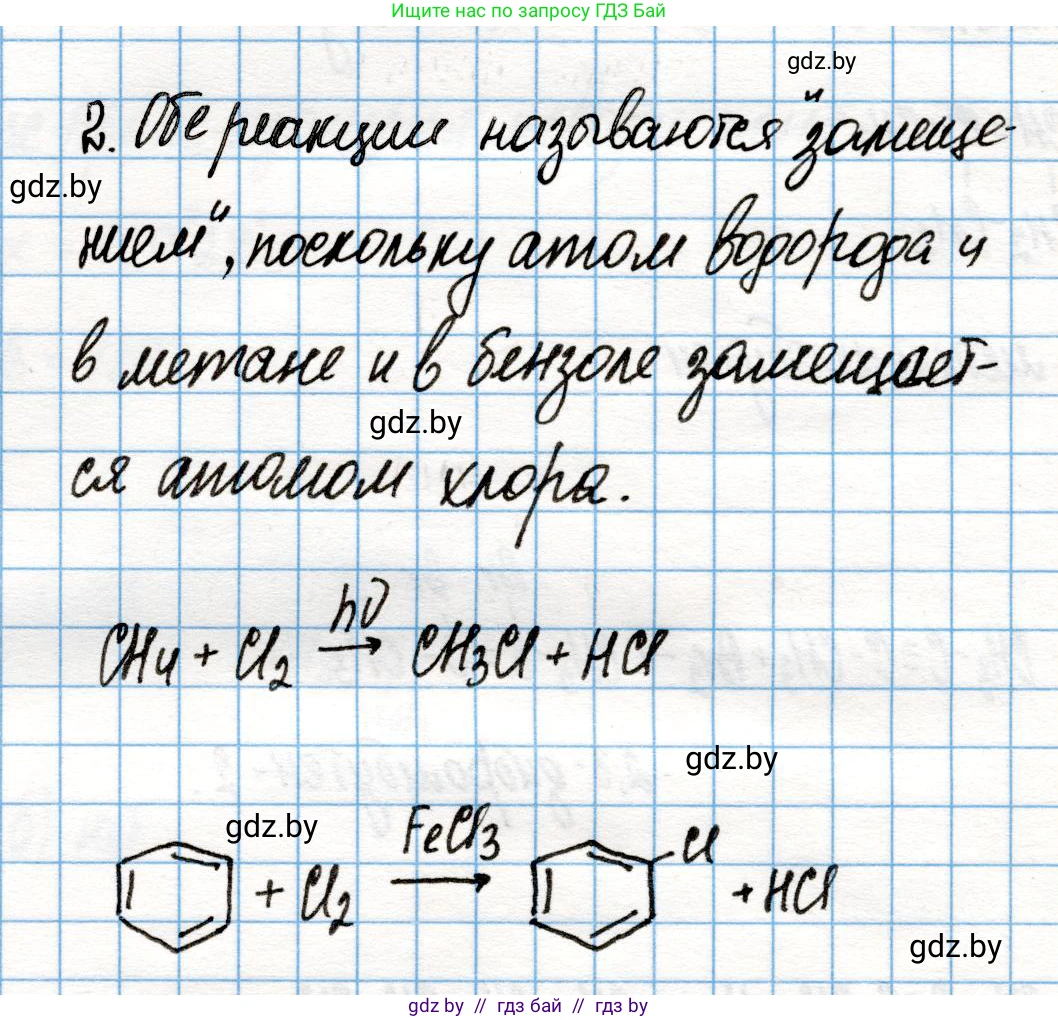 Ищите нас по запросу ГДЗ Бай
gdz.by
2. Обе реакции называются "замеще-
gdz.by
нием", поскольку атом водорода и
в метане и в бензоле замещает-
gdz.by
ся атомом хлора.
hν
CH4 + Cl2 → CH3Cl + HCl
gdz.by
gdz.by
FeCl3
Cl
+ Cl2 → + HCl
gdz.by
gdz.by // гдз бай // гдз by